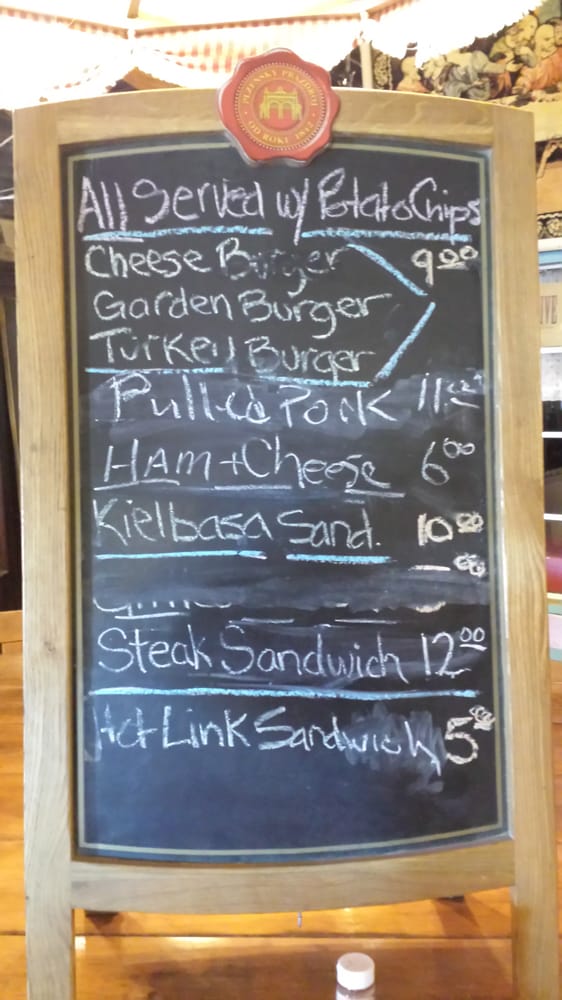 PLZEŇSKÝ PRAZDROJ
OD ROKU 1842
All Served w/ Potato Chips
Cheese Burger 9.00
Garden Burger
Turkey Burger
Pulled Pork 11.
Ham + Cheese 6.00
Kielbasa Sand. 10.00
Steak Sandwich 12.00
Hot Link Sandwich 5.00